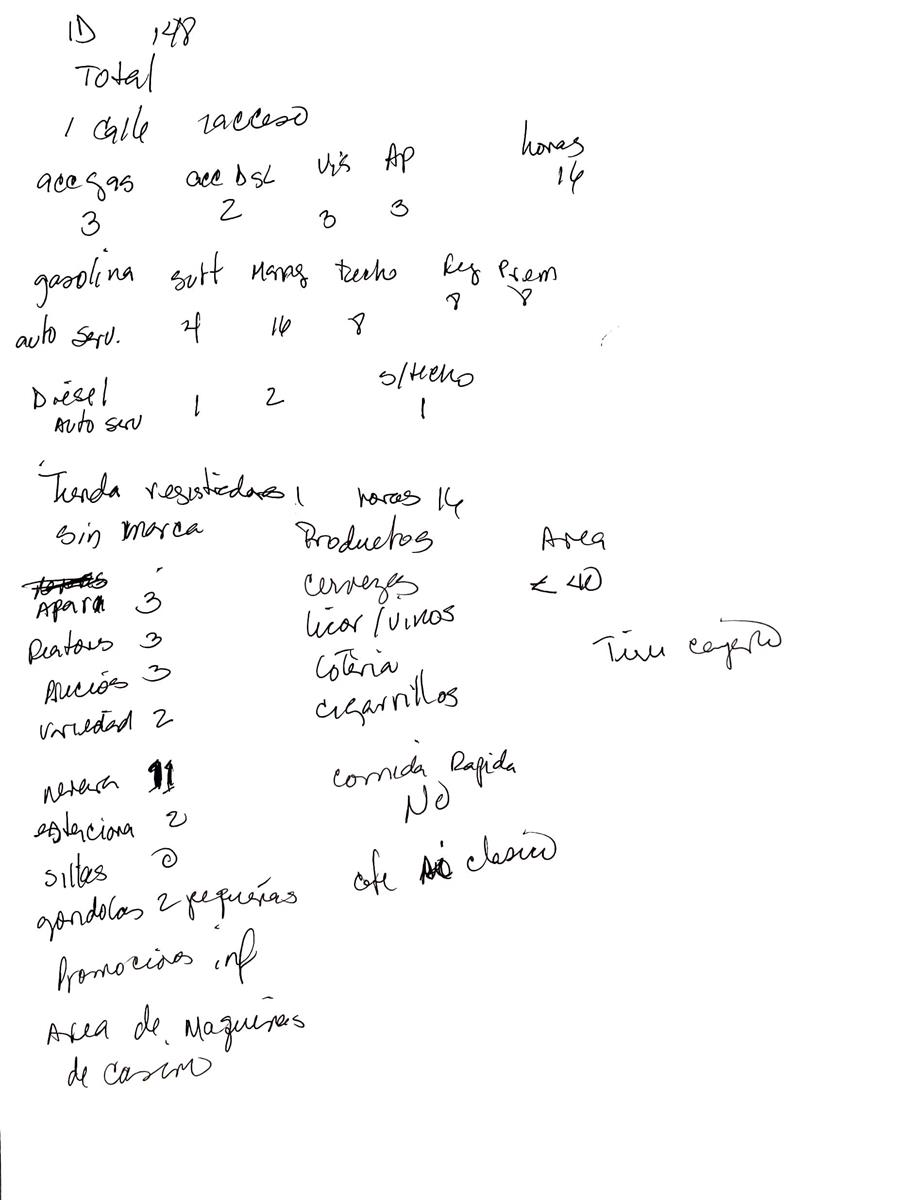 ID 148
Total
1 calle 2acceso
acc gas acc DSL Vis AP horas
3 2 3 3 16
gasolina surt Mang techo Reg Prem
auto serv. 4 16 8 8 8
Diésel 1 2 s/techo
Auto serv 1
Tienda registradoras 1 horas 16
sin marca Productos Area
Aparn 3 cervezas < 40
3 licor/vinos
precios 3 Loteria Tiene cajero
variedad 2 cigarrillos
nevera 11 comida Rapida
estaciona 2 NO
sillas 0 cafe clasico
gondolas 2 pequeñas
Promociones inf
Area de Maquinas
de Casino